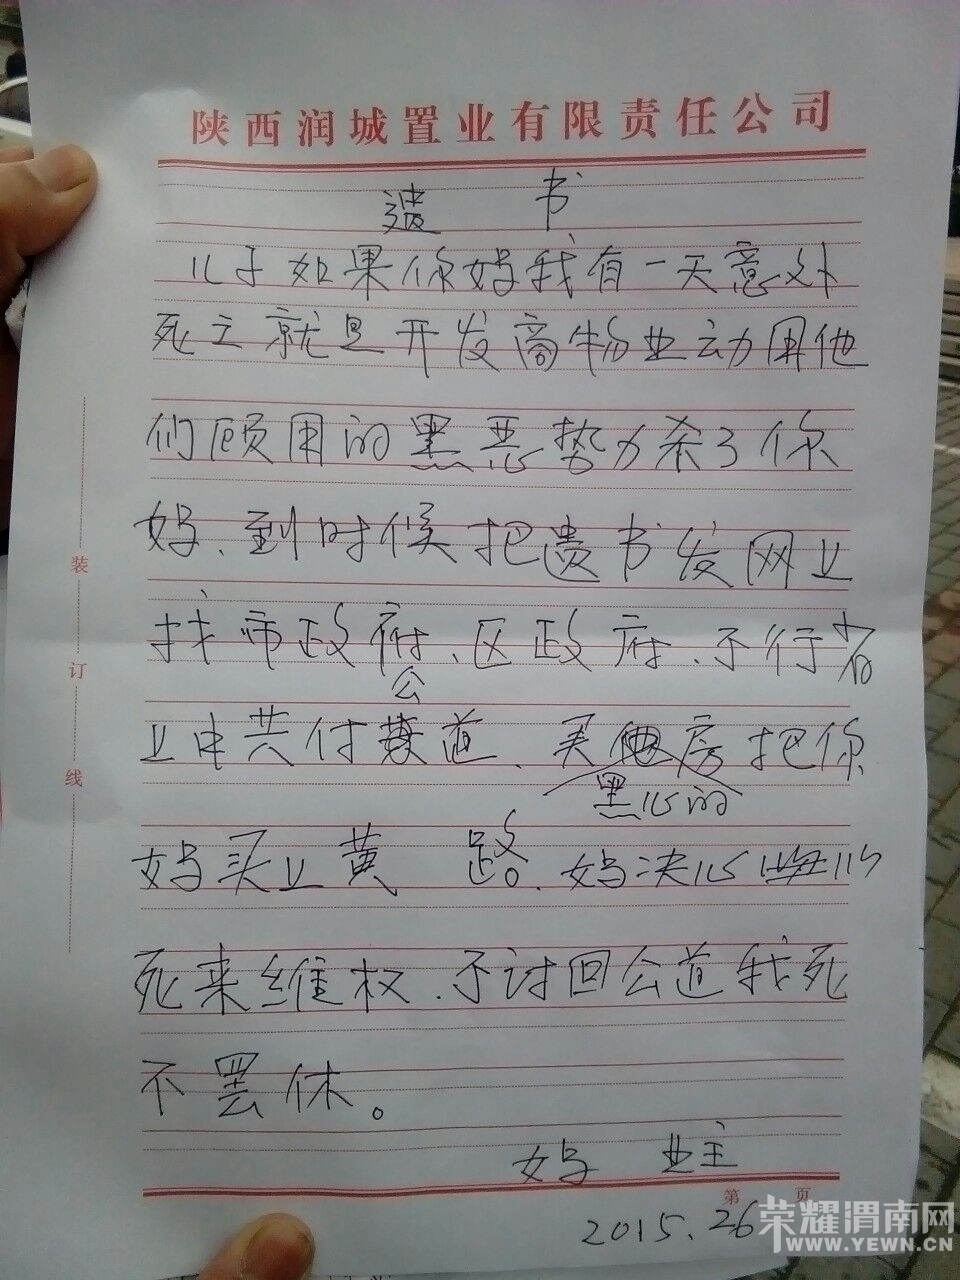 陕西润城置业有限责任公司
遗 书
儿子如果你妈我有一天意外
死亡就是开发商物业动用他
们顾用的黑恶势力杀了你
妈、到时候把遗书发网上
找市政府、区政府、不行省
公
上中共付道、买房把你
黑心的
妈买上黄 路。妈决心
死来维权、不讨回公道我死
不罢休。
妈 业主
第 页
2015.26
装
订
线
荣耀渭南网
WWW.YEWN.CN